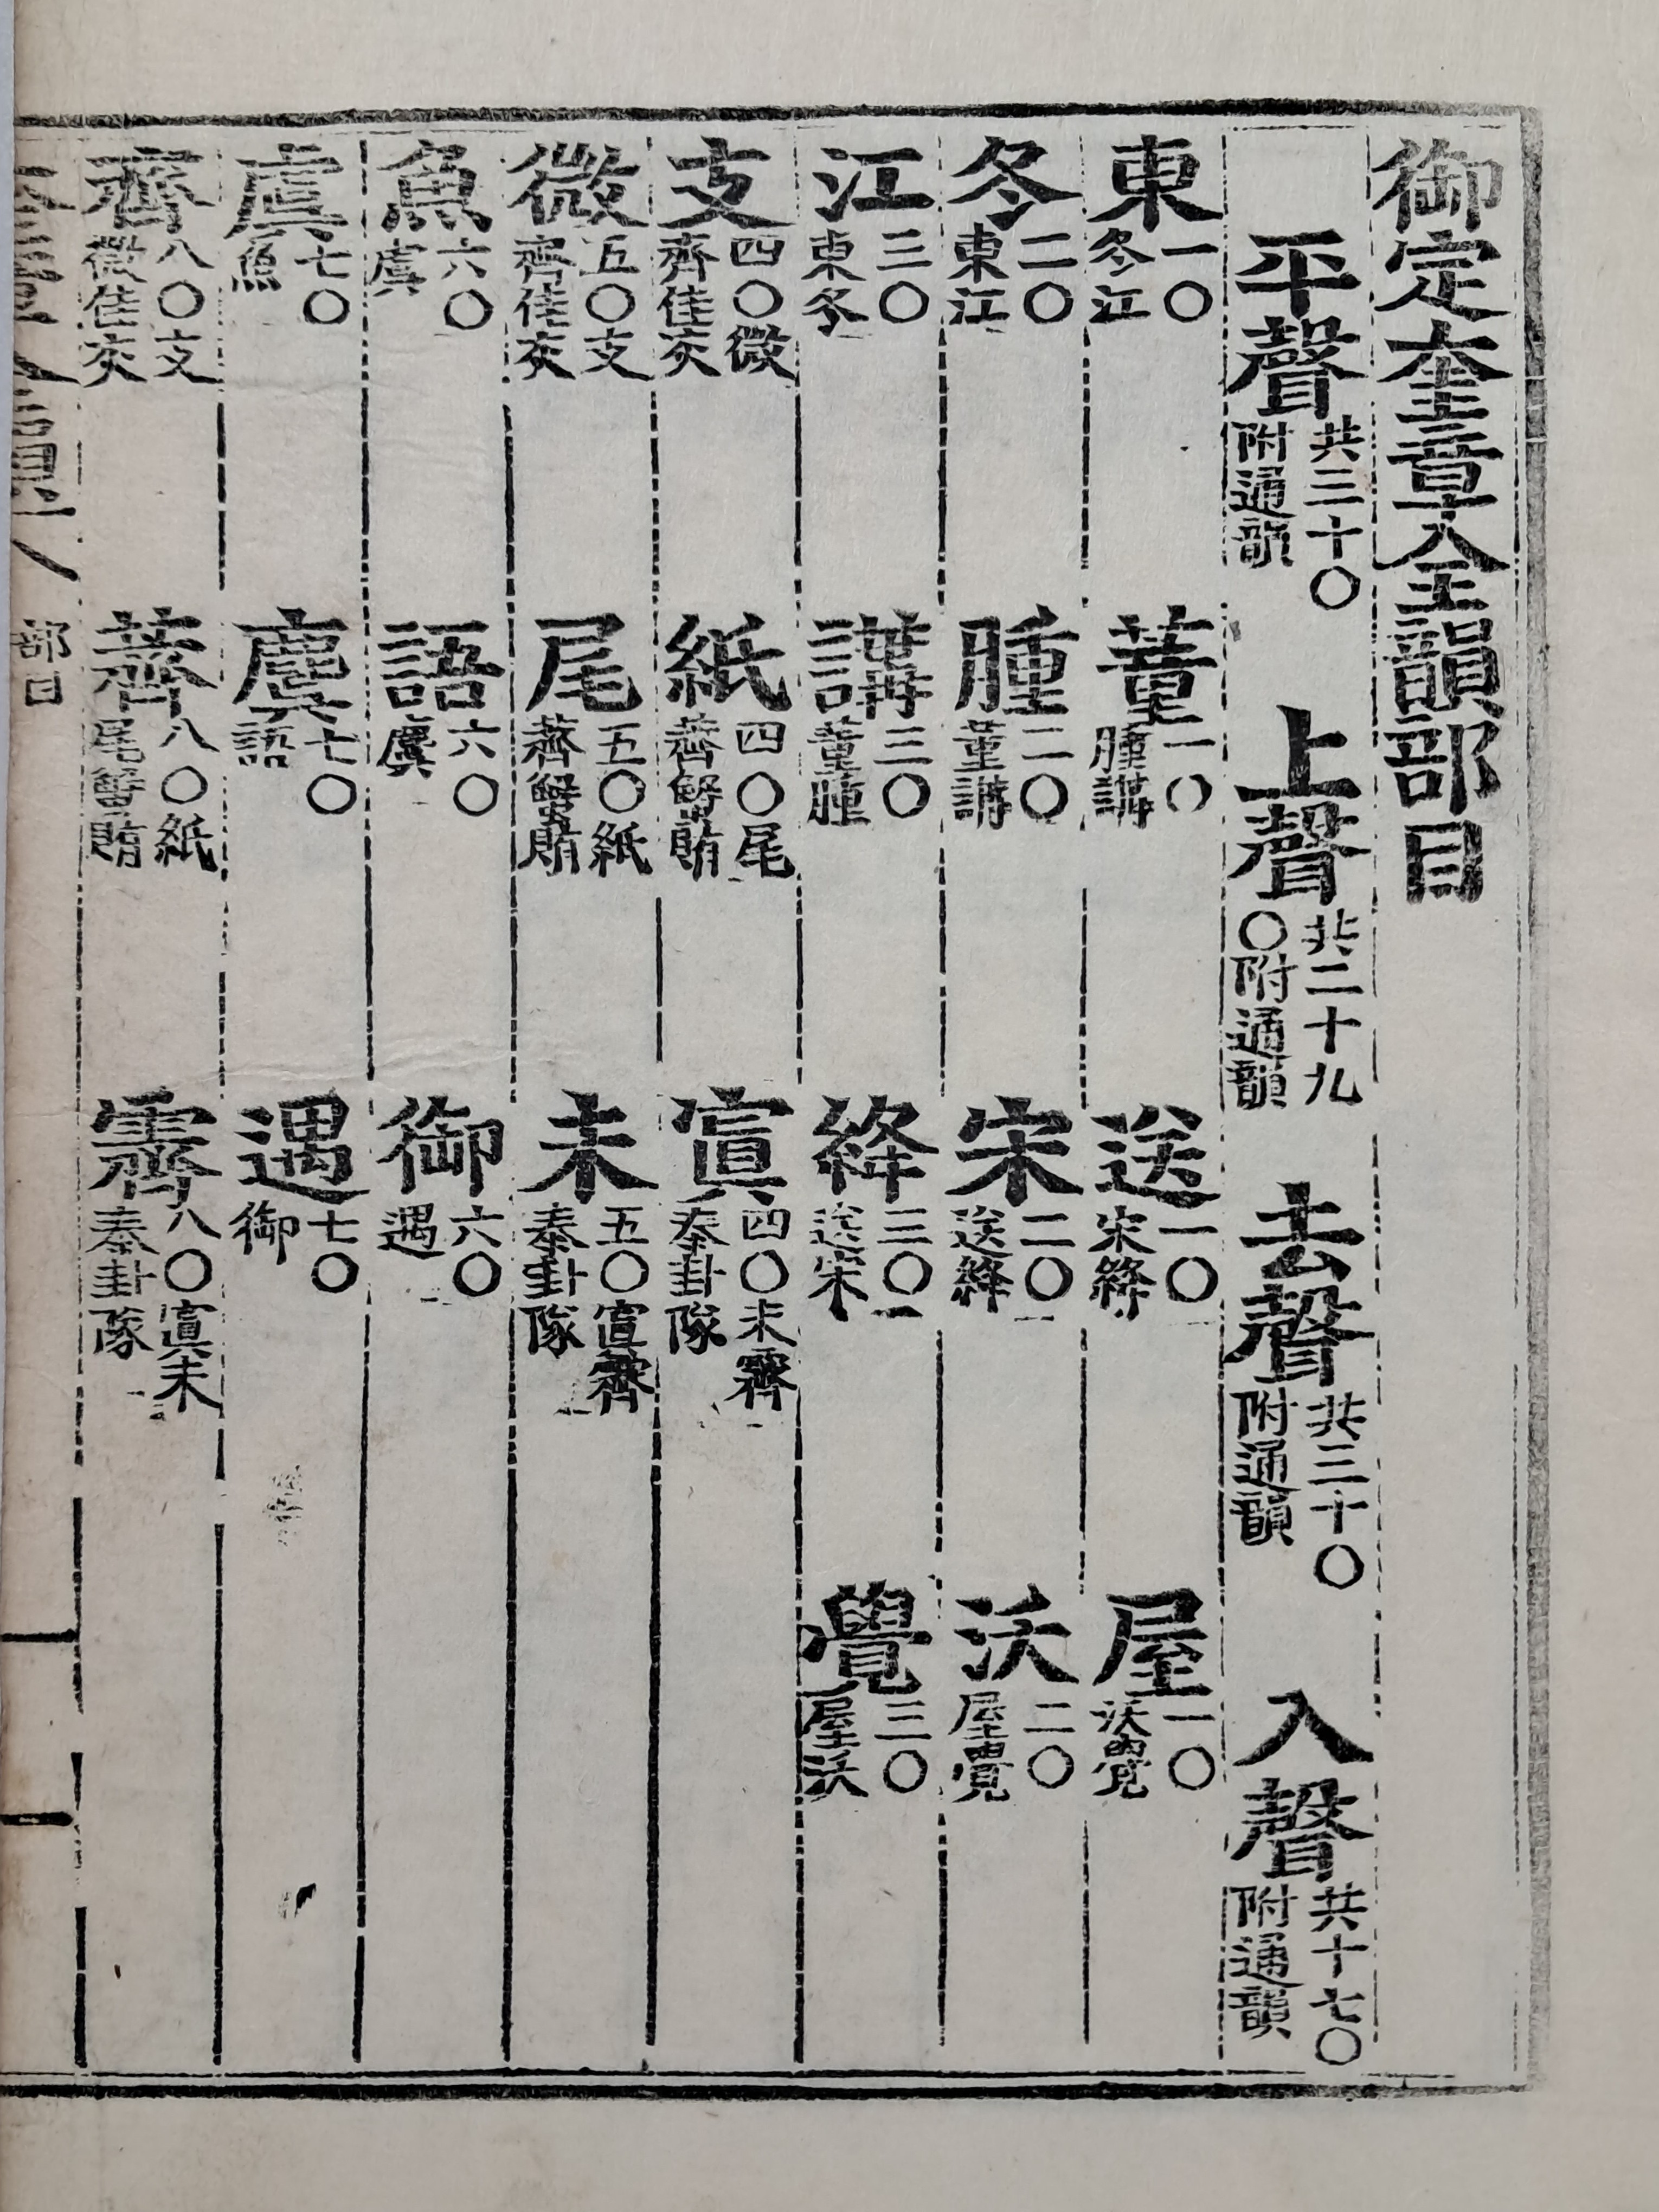 御定奎章全韻部目
平聲 共三十〇附通韻 上聲 共二十九〇附通韻 去聲 共三十〇附通韻 入聲 共十七〇附通韻
東 一〇冬江 董 一〇腫講 送 一〇宋絳 屋 一〇沃覺
冬 二〇東江 腫 二〇董講 宋 二〇送絳 沃 二〇屋覺
江 三〇東冬 講 三〇董腫 絳 三〇送宋 覺 三〇屋沃
支 四〇微齊佳灰 紙 四〇尾薺蟹賄 寘 四〇未霽泰卦隊
微 五〇支齊佳灰 尾 五〇紙薺蟹賄 未 五〇寘霽泰卦隊
魚 六〇虞 語 六〇麌 御 六〇遇
虞 七〇魚 麌 七〇語 遇 七〇御
齊 八〇支微佳灰 薺 八〇紙尾蟹賄 霽 八〇寘未泰卦隊
部目